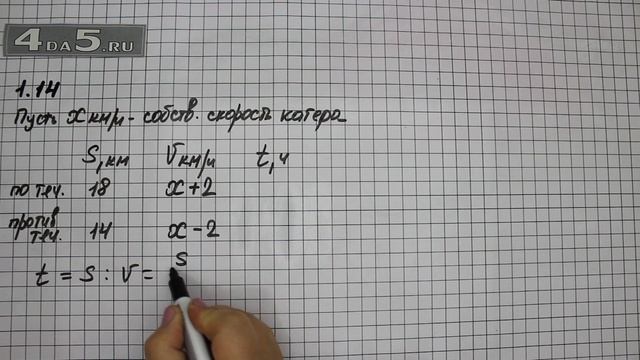 4DA5.RU
1.14
Пусть x км/ч - собств. скорость катера
S, км V км/ч t, ч
по теч. 18 x + 2
против теч. 14 x - 2
t = S : V = S